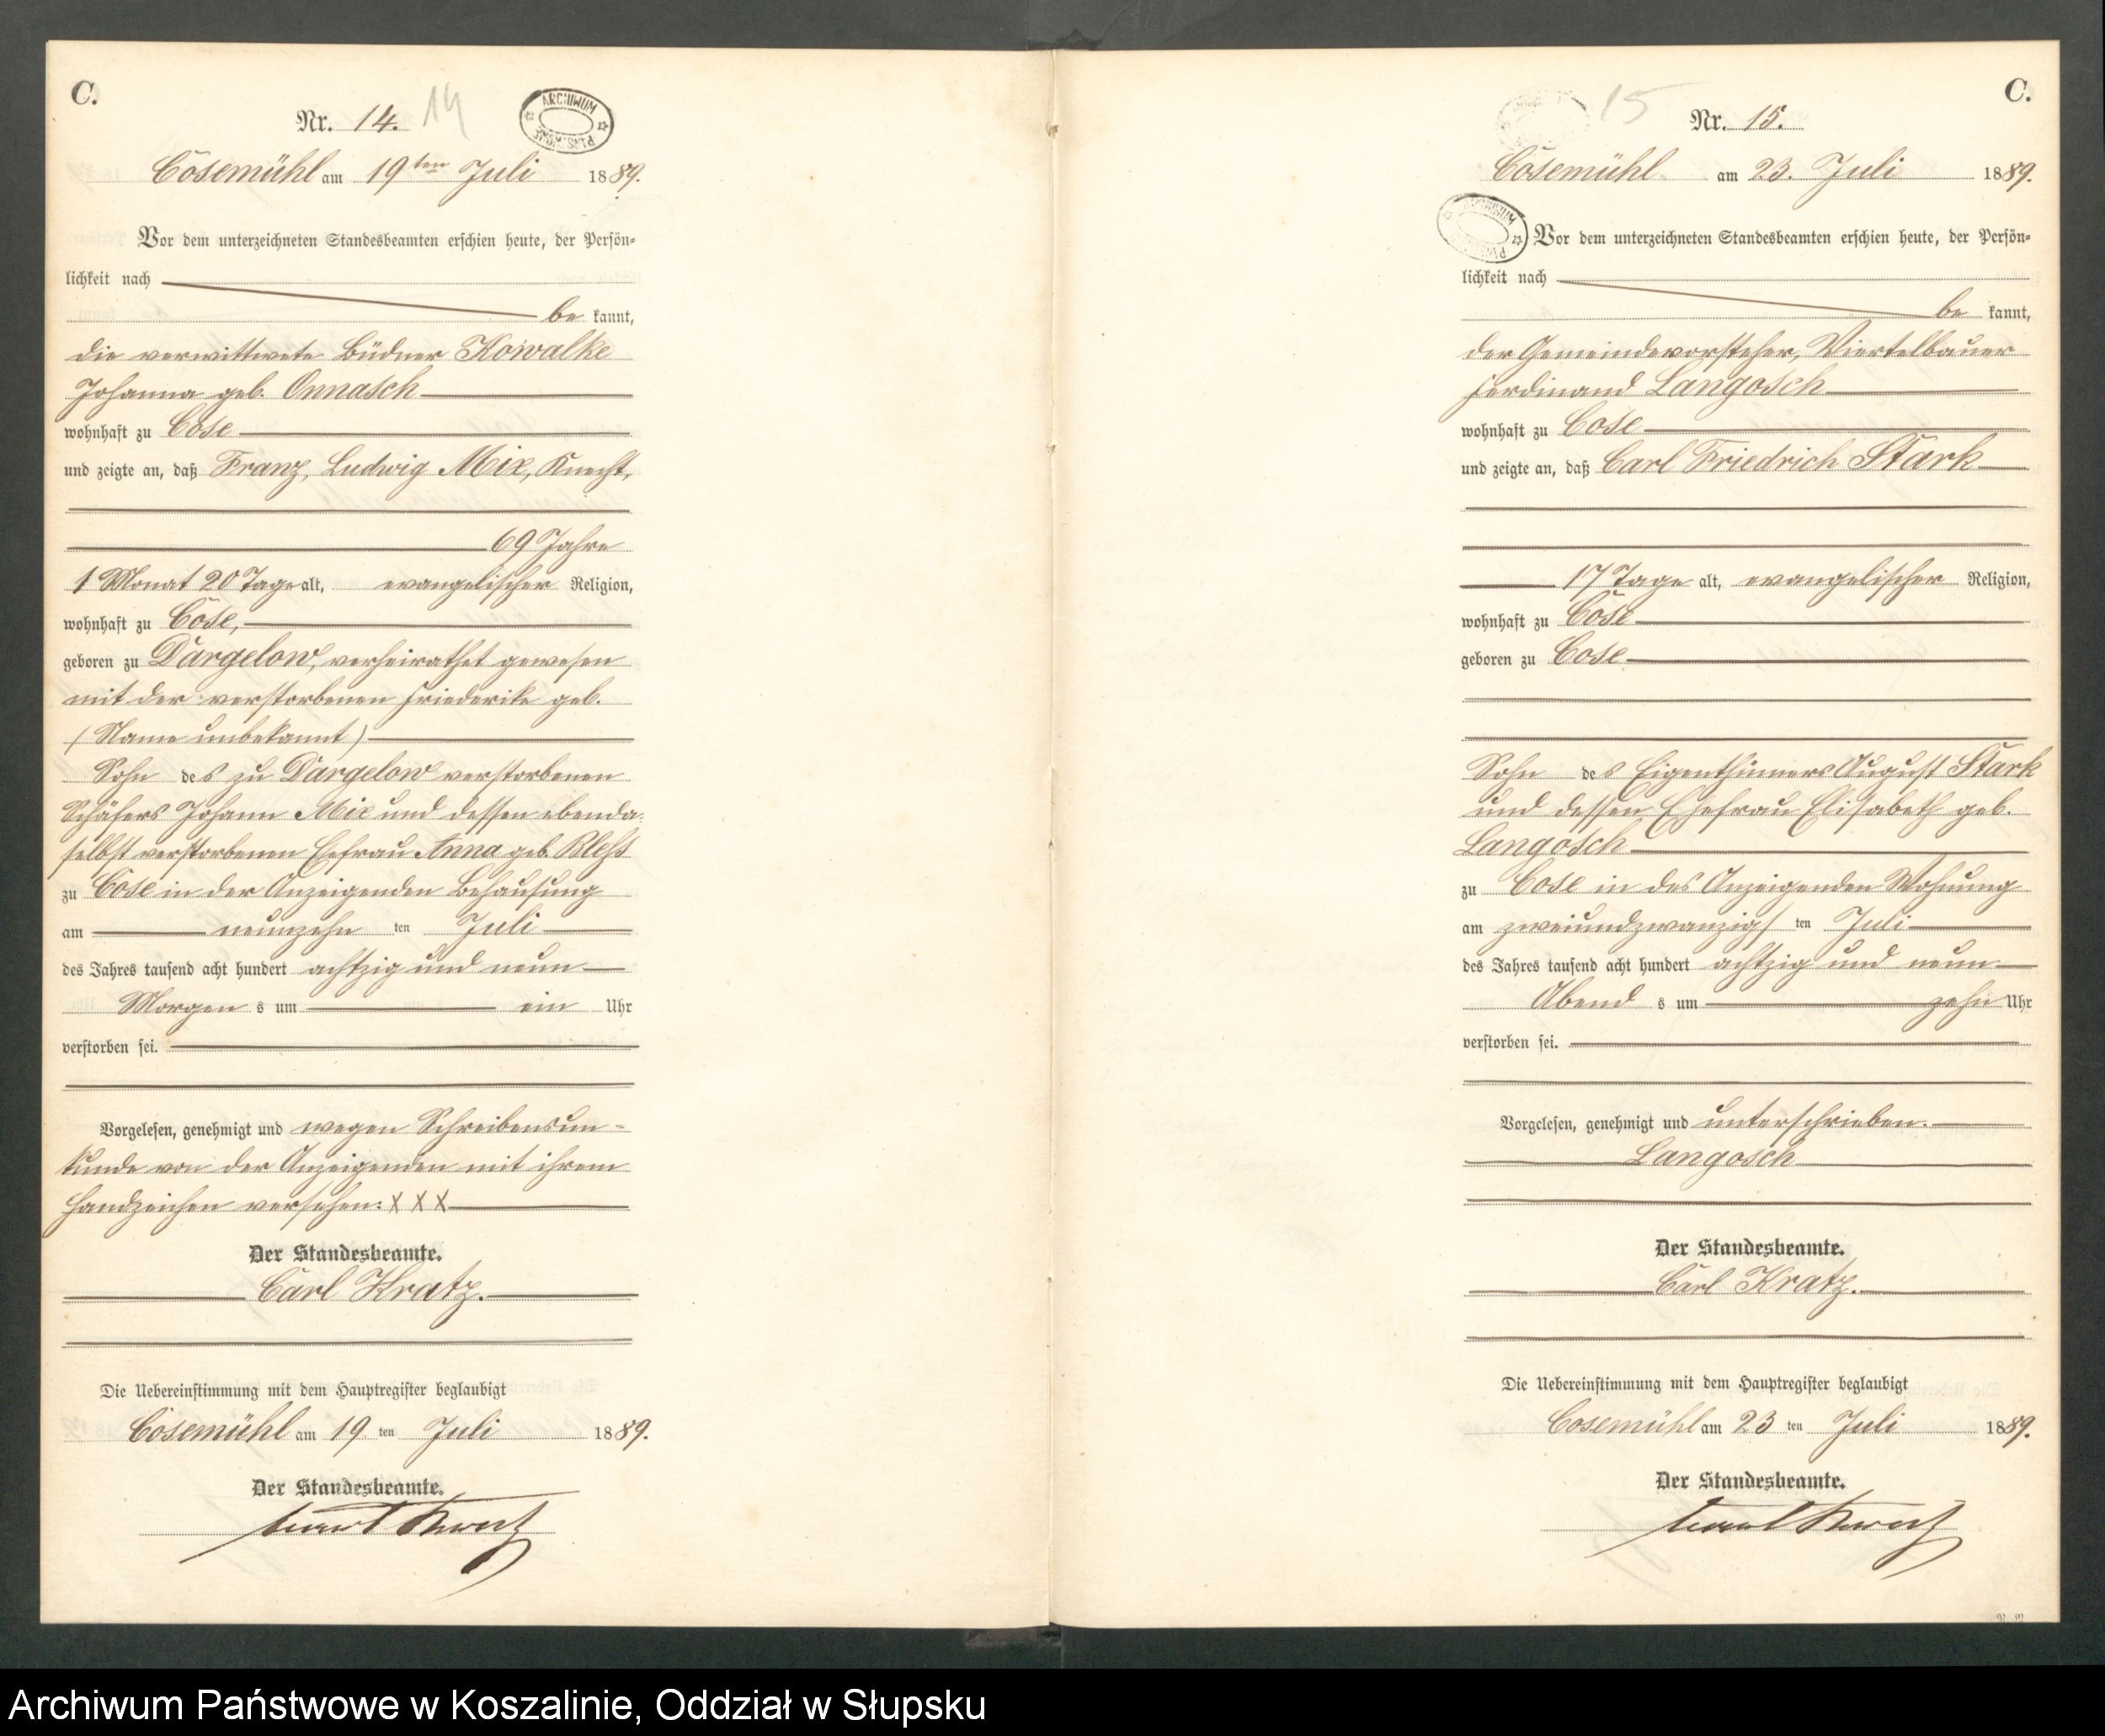 C.
Nr. 14. 14
ARCHIWUM PAŃSTWOWE
Cösemühl am 19ten Juli 1889.
Vor dem unterzeichneten Standesbeamten erschien heute, der Persön-
lichkeit nach
be kannt,
die verwittwete Büdner Kowalke
Johanna geb. Onnasch
wohnhaft zu Cose
und zeigte an, daß Franz, Ludwig Mix, Knecht,
69 Jahre
1 Monat 20 Tage alt, evangelischer Religion,
wohnhaft zu Cöse,
geboren zu Dargelow, verheirathet gewesen
mit der verstorbenen Friederike geb.
(Name unbekannt)
Sohn des zu Dargelow verstorbenen
Schäfers Johann Mix und dessen ebenda-
selbst verstorbenen Ehefrau Anna geb.
zu Cose in der Anzeigenden Behausung
am neunzehn ten Juli
des Jahres tausend acht hundert achtzig und neun
Morgen s um ein Uhr
verstorben sei.
Vorgelesen, genehmigt und wegen Schreibensun-
kunde von der Anzeigenden mit ihrem
Handzeichen versehen: X X X
Der Standesbeamte.
Carl Kratz.
Die Uebereinstimmung mit dem Hauptregister beglaubigt
Cösemühl am 19 ten Juli 1889.
Der Standesbeamte.
Carl Kratz
C.
15
Nr. 15.
Cosemühl am 23. Juli 1889.
Vor dem unterzeichneten Standesbeamten erschien heute, der Persön-
lichkeit nach
be kannt,
der Gemeindevorsteher, Viertelbauer
Ferdinand Langosch
wohnhaft zu Cose
und zeigte an, daß Carl Friedrich Stark
17 Tage alt, evangelischer Religion,
wohnhaft zu Cose
geboren zu Cose
Sohn des Eigenthümers August Stark
und dessen Ehefrau Elisabeth geb.
Langosch
zu Cose in des Anzeigenden Wohnung
am zweiundzwanzigs ten Juli
des Jahres tausend acht hundert achtzig und neun
Abend s um zehn Uhr
verstorben sei.
Vorgelesen, genehmigt und unterschrieben.
Langosch
Der Standesbeamte.
Carl Kratz.
Die Uebereinstimmung mit dem Hauptregister beglaubigt
Cosemühl am 23 ten Juli 1889.
Der Standesbeamte.
Carl Kratz
Archiwum Państwowe w Koszalinie, Oddział w Słupsku